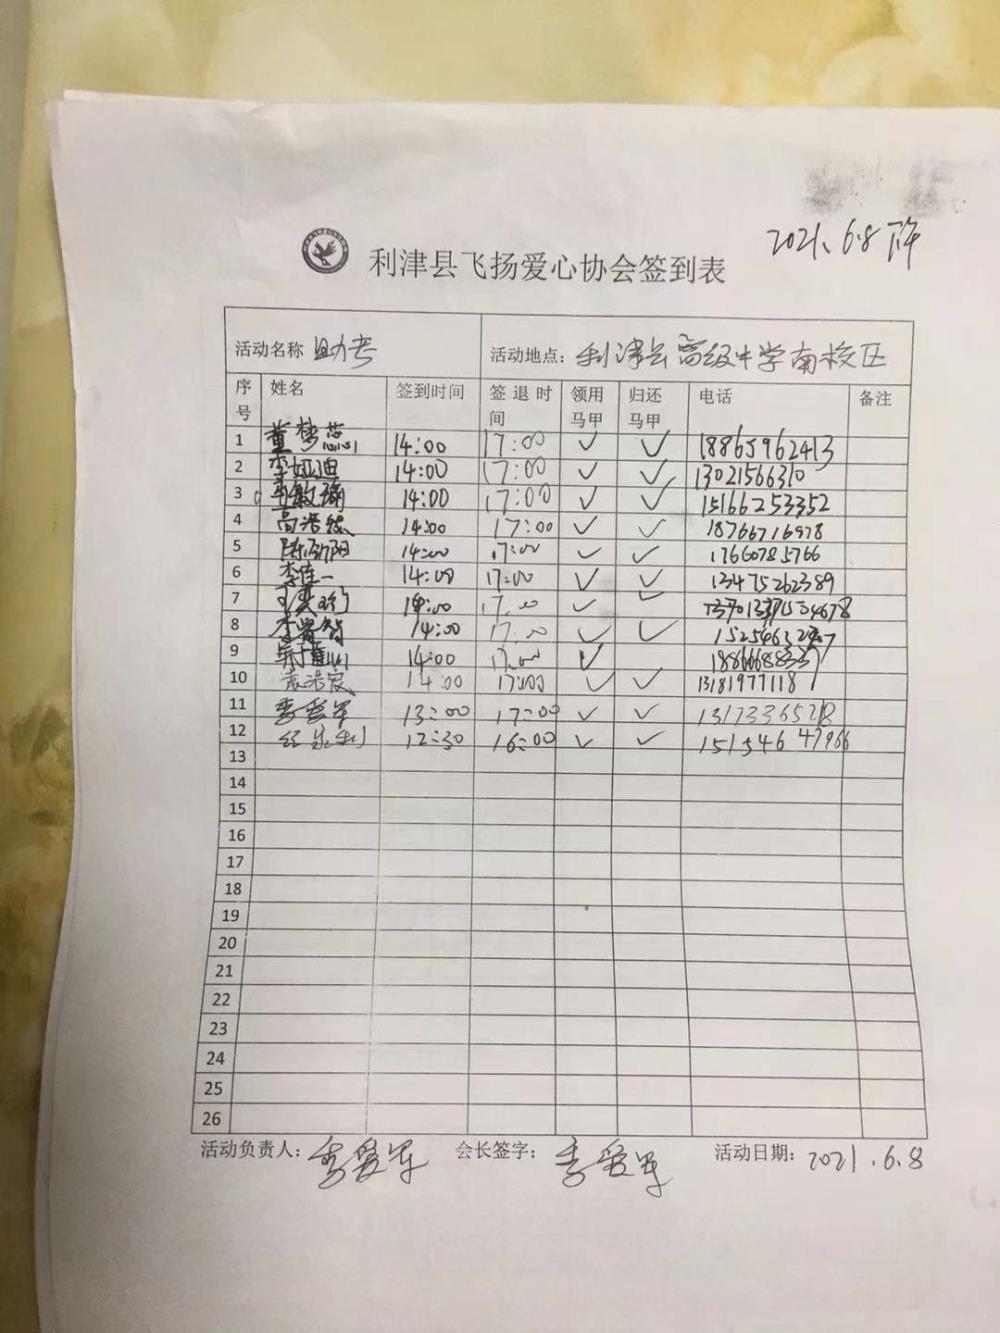 2021.6.8 下午
利津县飞扬爱心协会签到表
活动名称 助考 活动地点: 利津县高级中学南校区
序号 姓名 签到时间 签退时间 领用马甲 归还马甲 电话 备注
1 董梦蕊 14:00 17:00 ✓ ✓ 18865962413
2 李娅迪 14:00 17:00 ✓ ✓ 13021566310
3 14:00 17:00 ✓ ✓ 15166253352
4 高浩然 14:00 17:00 ✓ ✓ 18766716978
5 14:00 17:00 ✓ ✓ 17660785766
6 李佳一 14:00 17:00 ✓ ✓ 13475262389
7 14:00 17:00 ✓ ✓
8 14:00 17:00 ✓ ✓
9 14:00 17:00 ✓
10 14:00 17:00 ✓ ✓ 13181977118
11 李爱军 13:00 17:00 ✓ ✓
12 12:30 16:00 ✓ ✓ 15154647966
13
14
15
16
17
18
19
20
21
22
23
24
25
26
活动负责人: 李爱军 会长签字: 李爱军 活动日期: 2021.6.8